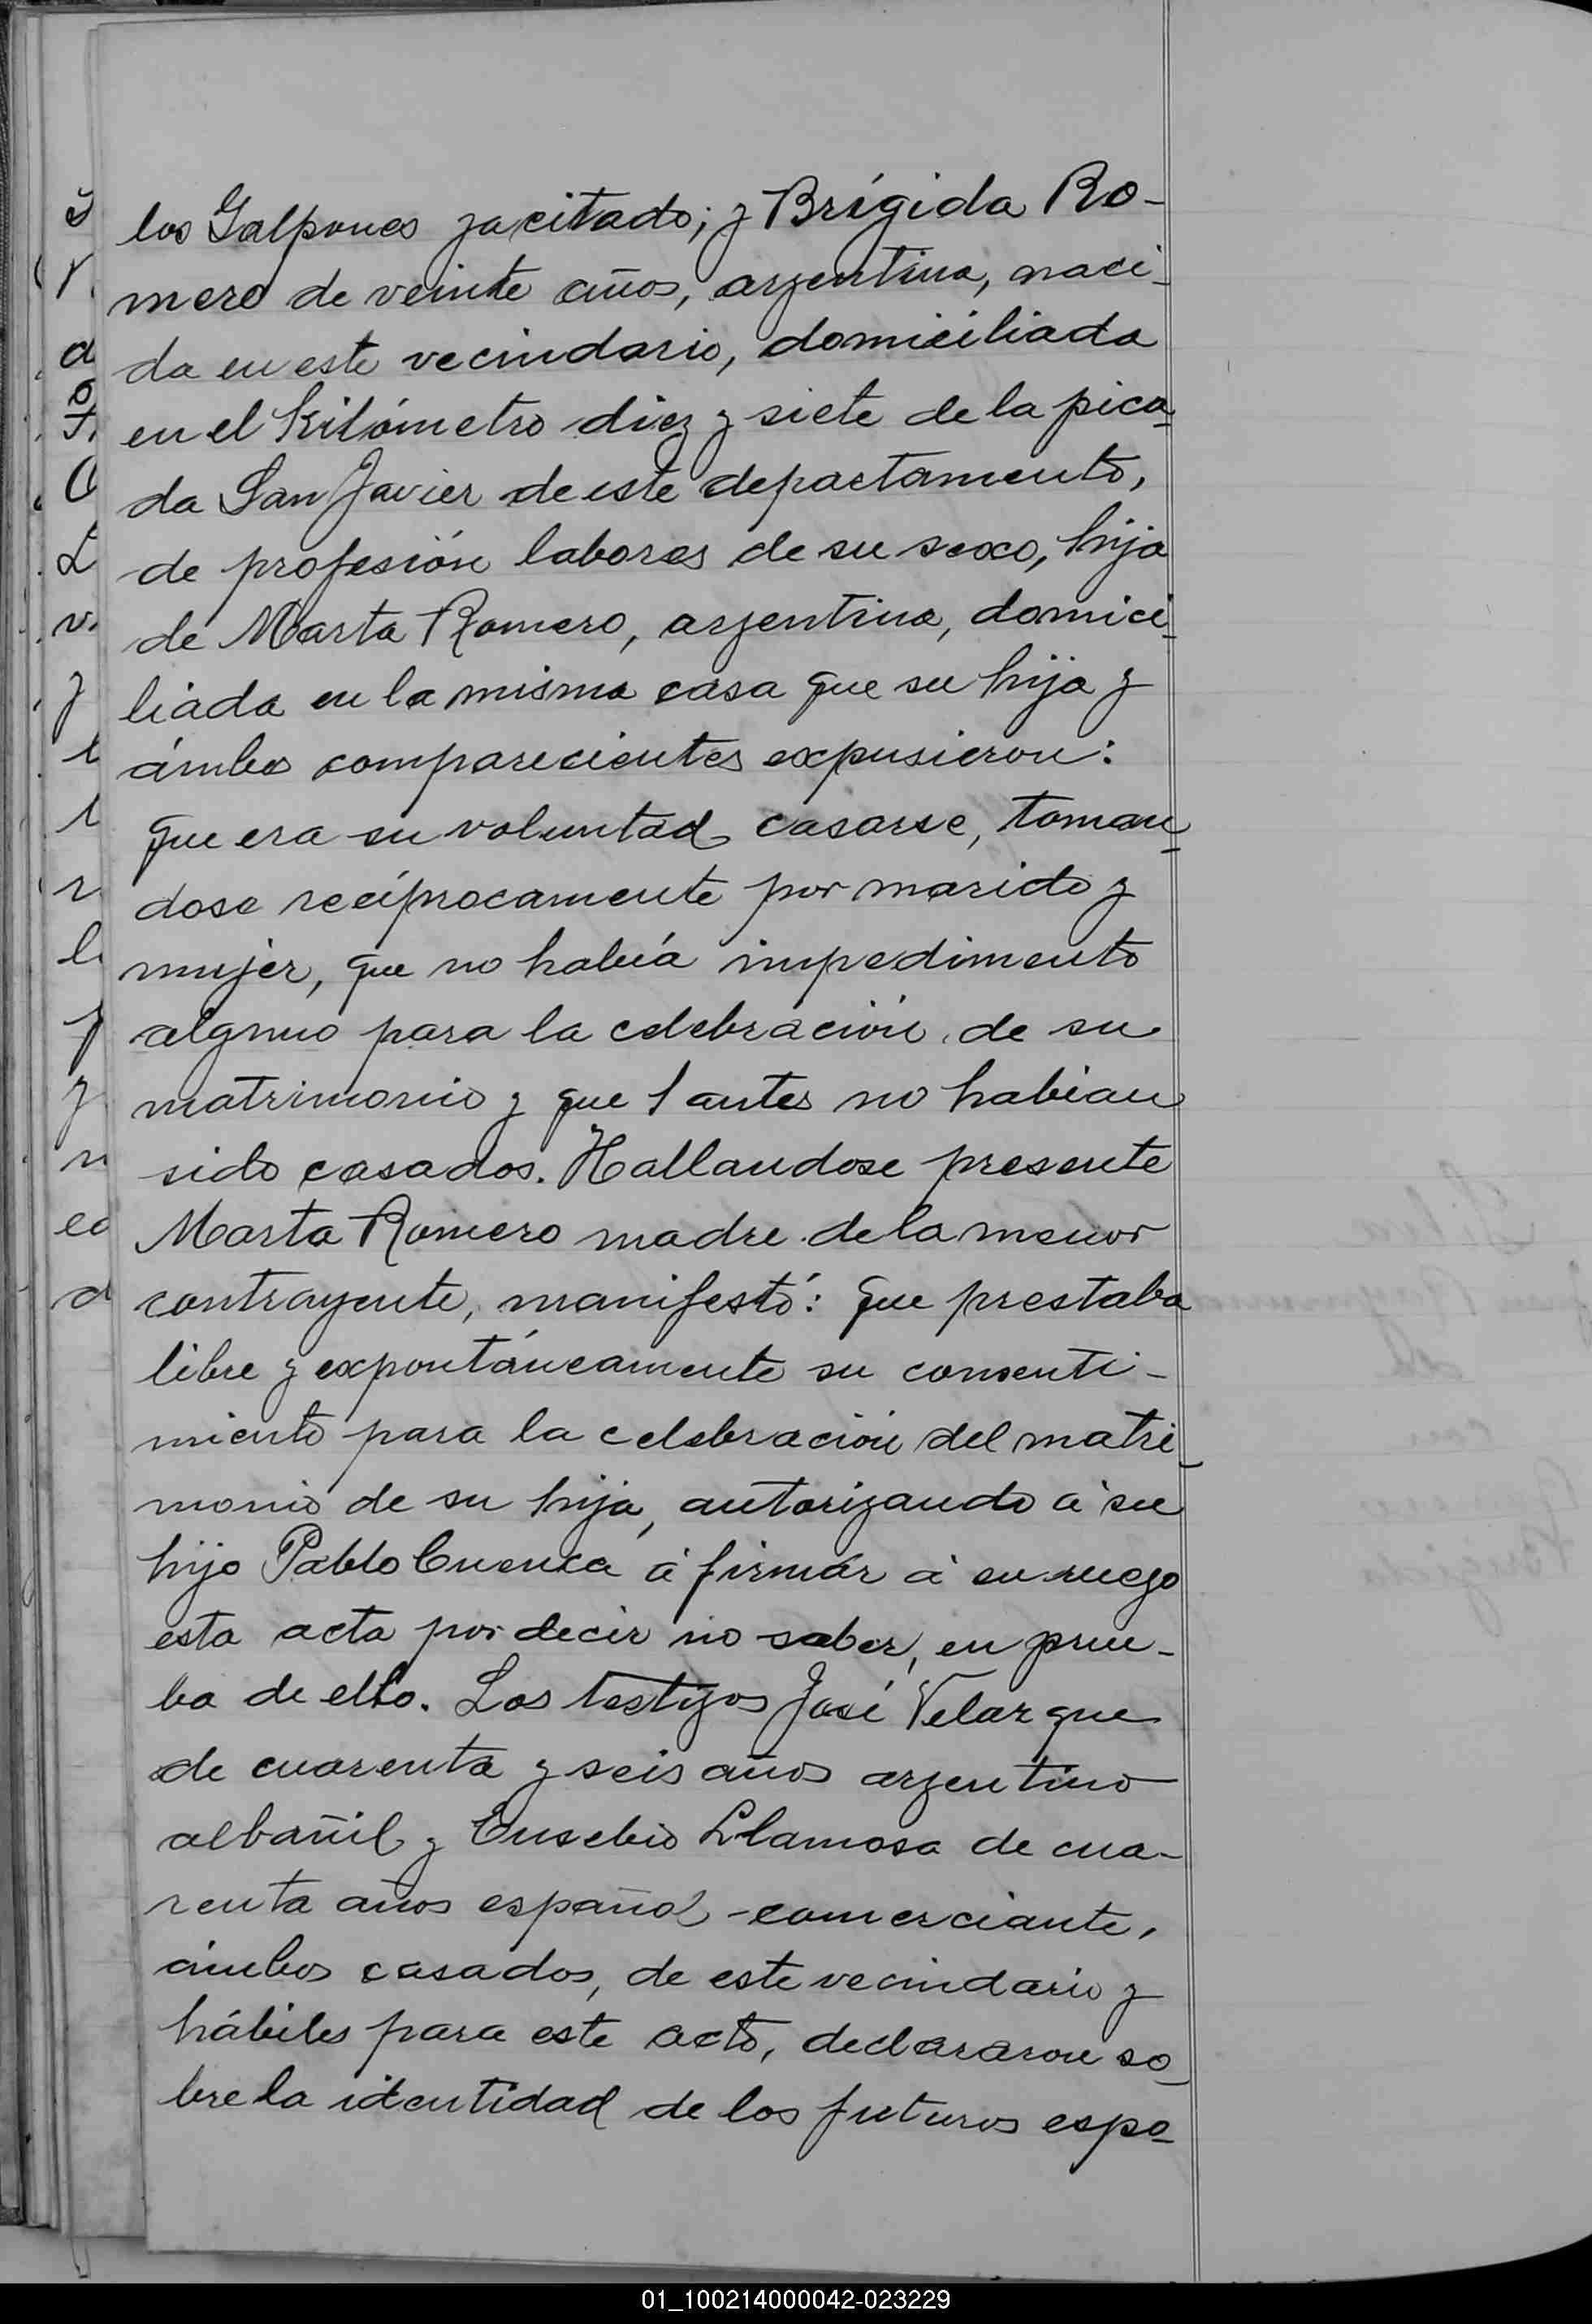 los Galpones ya citado; y Brígida Ro-
mero de veinte años, argentina, naci-
da en este vecindario, domiciliada
en el Kilómetro diez y siete de la pica-
da San Javier de este departamento,
de profesión labores de su sexo, hija
de Marta Romero, argentina, domici-
liada en la misma casa que su hija y
ámbos comparecientes expusieron:
que era su voluntad casarse, toman-
dose recíprocamente por marido y
mujer, que no había impedimento
alguno para la celebración de su
matrimonio y que antes no habian
sido casados. Hallandose presente
Marta Romero madre de la menor
contrayente, manifestó: que prestaba
libre y expontáneamente su consenti-
miento para la celebración del matri-
monio de su hija, autorizando á su
hijo Pablo Cuenca á firmar á su ruego
esta acta por decir no saber, en prue-
ba de ello. Los testigos José Velazque
de cuarenta y seis años argentino
albañil y Eusebio Llamosa de cua-
renta años español comerciante,
ámbos casados, de este vecindario y
hábiles para este acto, declararon so-
bre la identidad de los futuros espo-
01_100214000042-023229